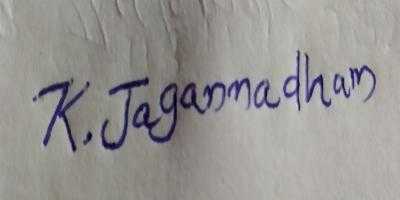 K. Jagannadham